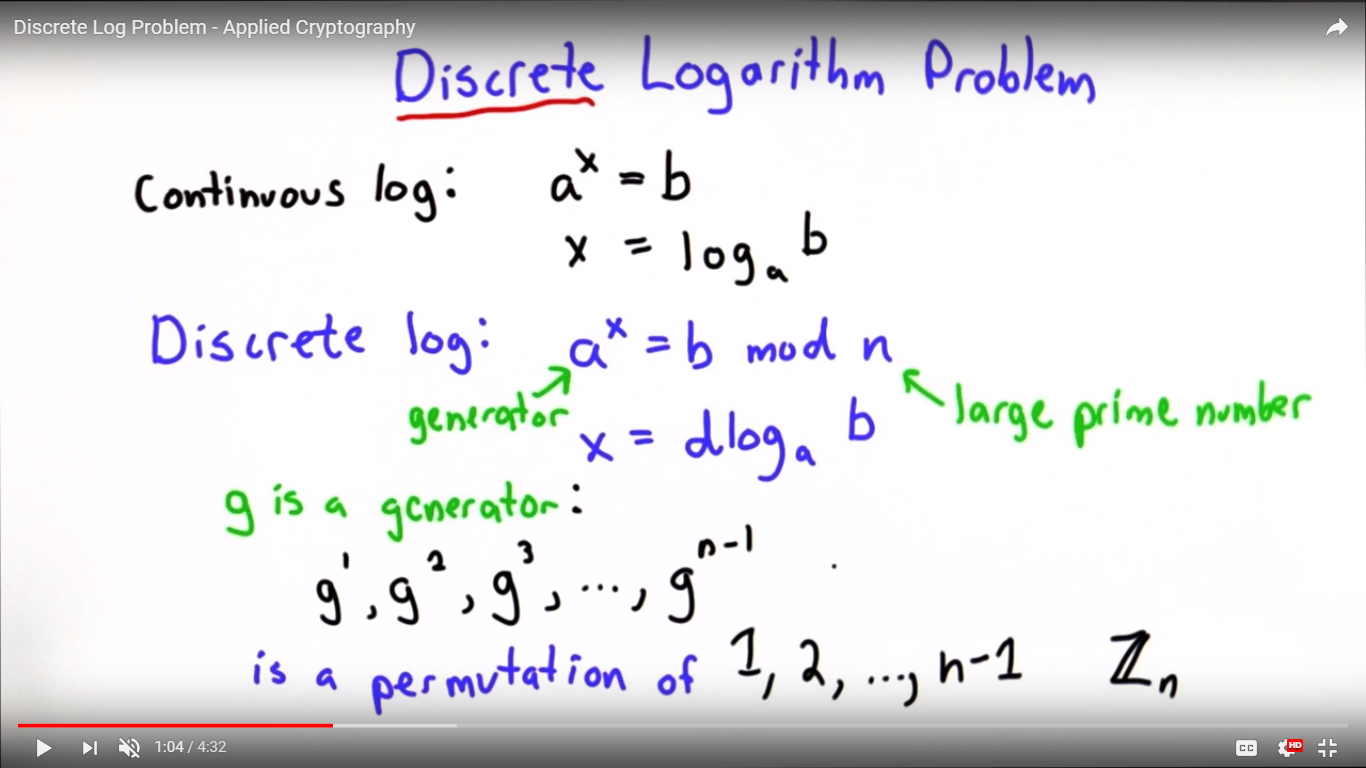 Discrete Log Problem - Applied Cryptography
Discrete Logarithm Problem
Continuous log: aˣ = b
x = logₐ b
Discrete log: aˣ = b mod n
generator
large prime number
x = dlogₐ b
g is a generator:
g¹, g², g³, ..., gⁿ⁻¹
is a permutation of 1, 2, ..., n-1 ℤₙ
1:04 / 4:32
CC HD